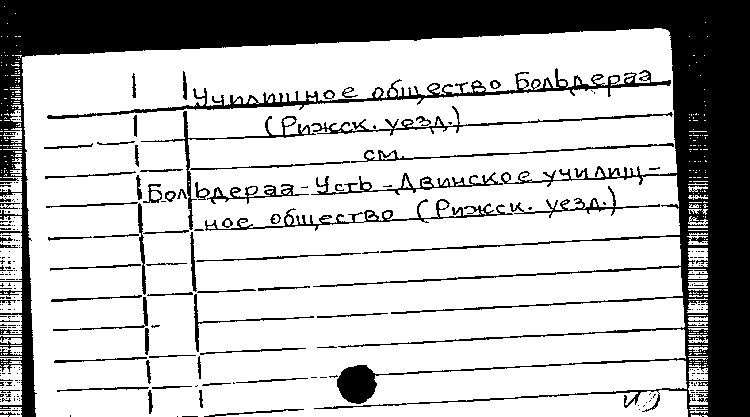 Училищное общество Больдераа
(Рижск. уезд.)
см.
Больдераа-Усть-Двинское училищ-
ное общество (Рижск. уезд.)